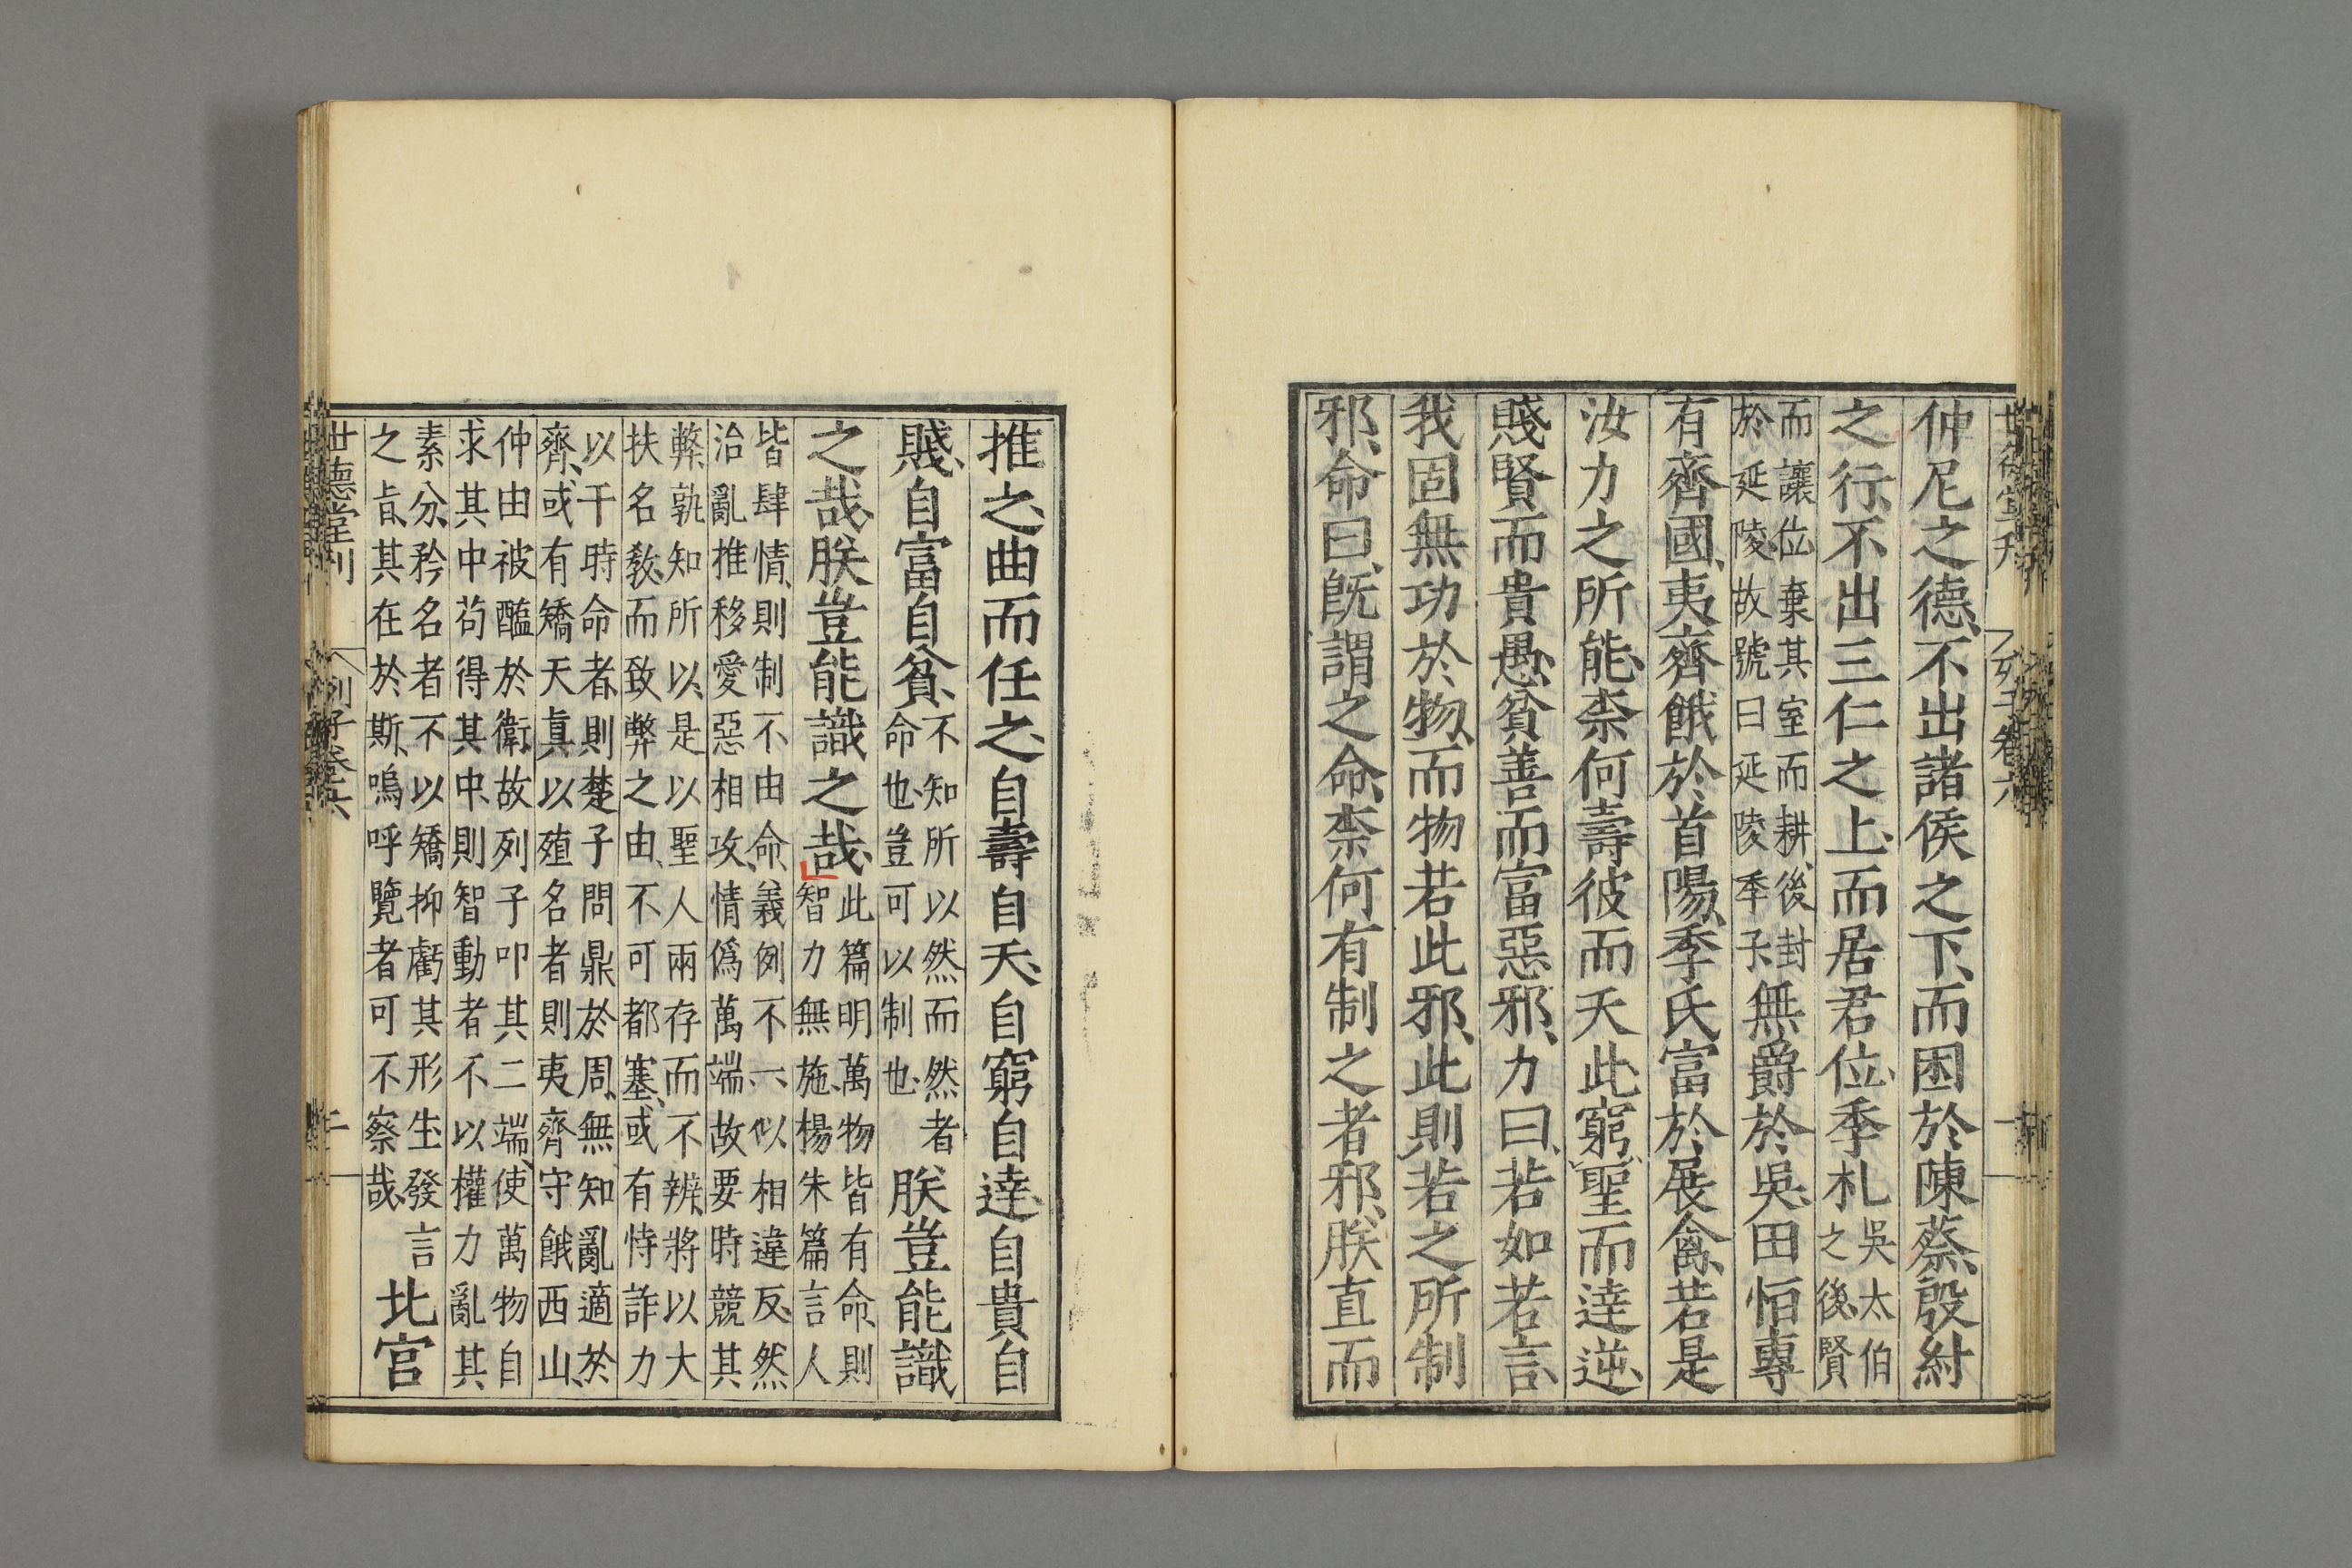 仲尼之德、不出諸侯之下、而困於陳蔡、殷紂
之行、不出三仁之上、而居君位、季札吳太伯之後、賢
而讓位棄其室而耕、後封於延陵、故號曰延陵季子、無爵於吳、田恒專
有齊國、夷齊餓於首陽、季氏富於展禽、若是
汝力之所能、柰何壽彼而夭此、窮聖而達逆、
賤賢而貴愚、貧善而富惡邪、力曰、若如若言、
我固無功於物、而物若此邪、此則若之所制
邪、命曰、旣謂之命、柰何有制之者邪、朕直而
推之、曲而任之、自壽自夭、自窮自達、自貴自
賤、自富自貧、不知所以然而然者命也、豈可以制也、朕豈能識
之哉、朕豈能識之哉、此篇明萬物皆有命、則智力無施、楊朱篇言人
皆肆情、則制不由命、義例不一、似相違反、然治亂推移、愛惡相攻、情僞萬端、故要時競其
弊、孰知所以、是以聖人兩存而不辨、將以大扶名敎、而致弊之由、不可都塞、或有恃詐力
以干時命者、則楚子問鼎於周、無知亂適於齊、或有矯天眞以殖名者、則夷齊守餓西山、
仲由被醢於衞、故列子叩其二端、使萬物自求其中、苟得其中、則智動者不以權力亂其
素分、矜名者不以矯抑虧其形生、發言之旨、其在於斯、嗚呼覽者可不察哉、北宮
世德堂刊 列子卷六 二